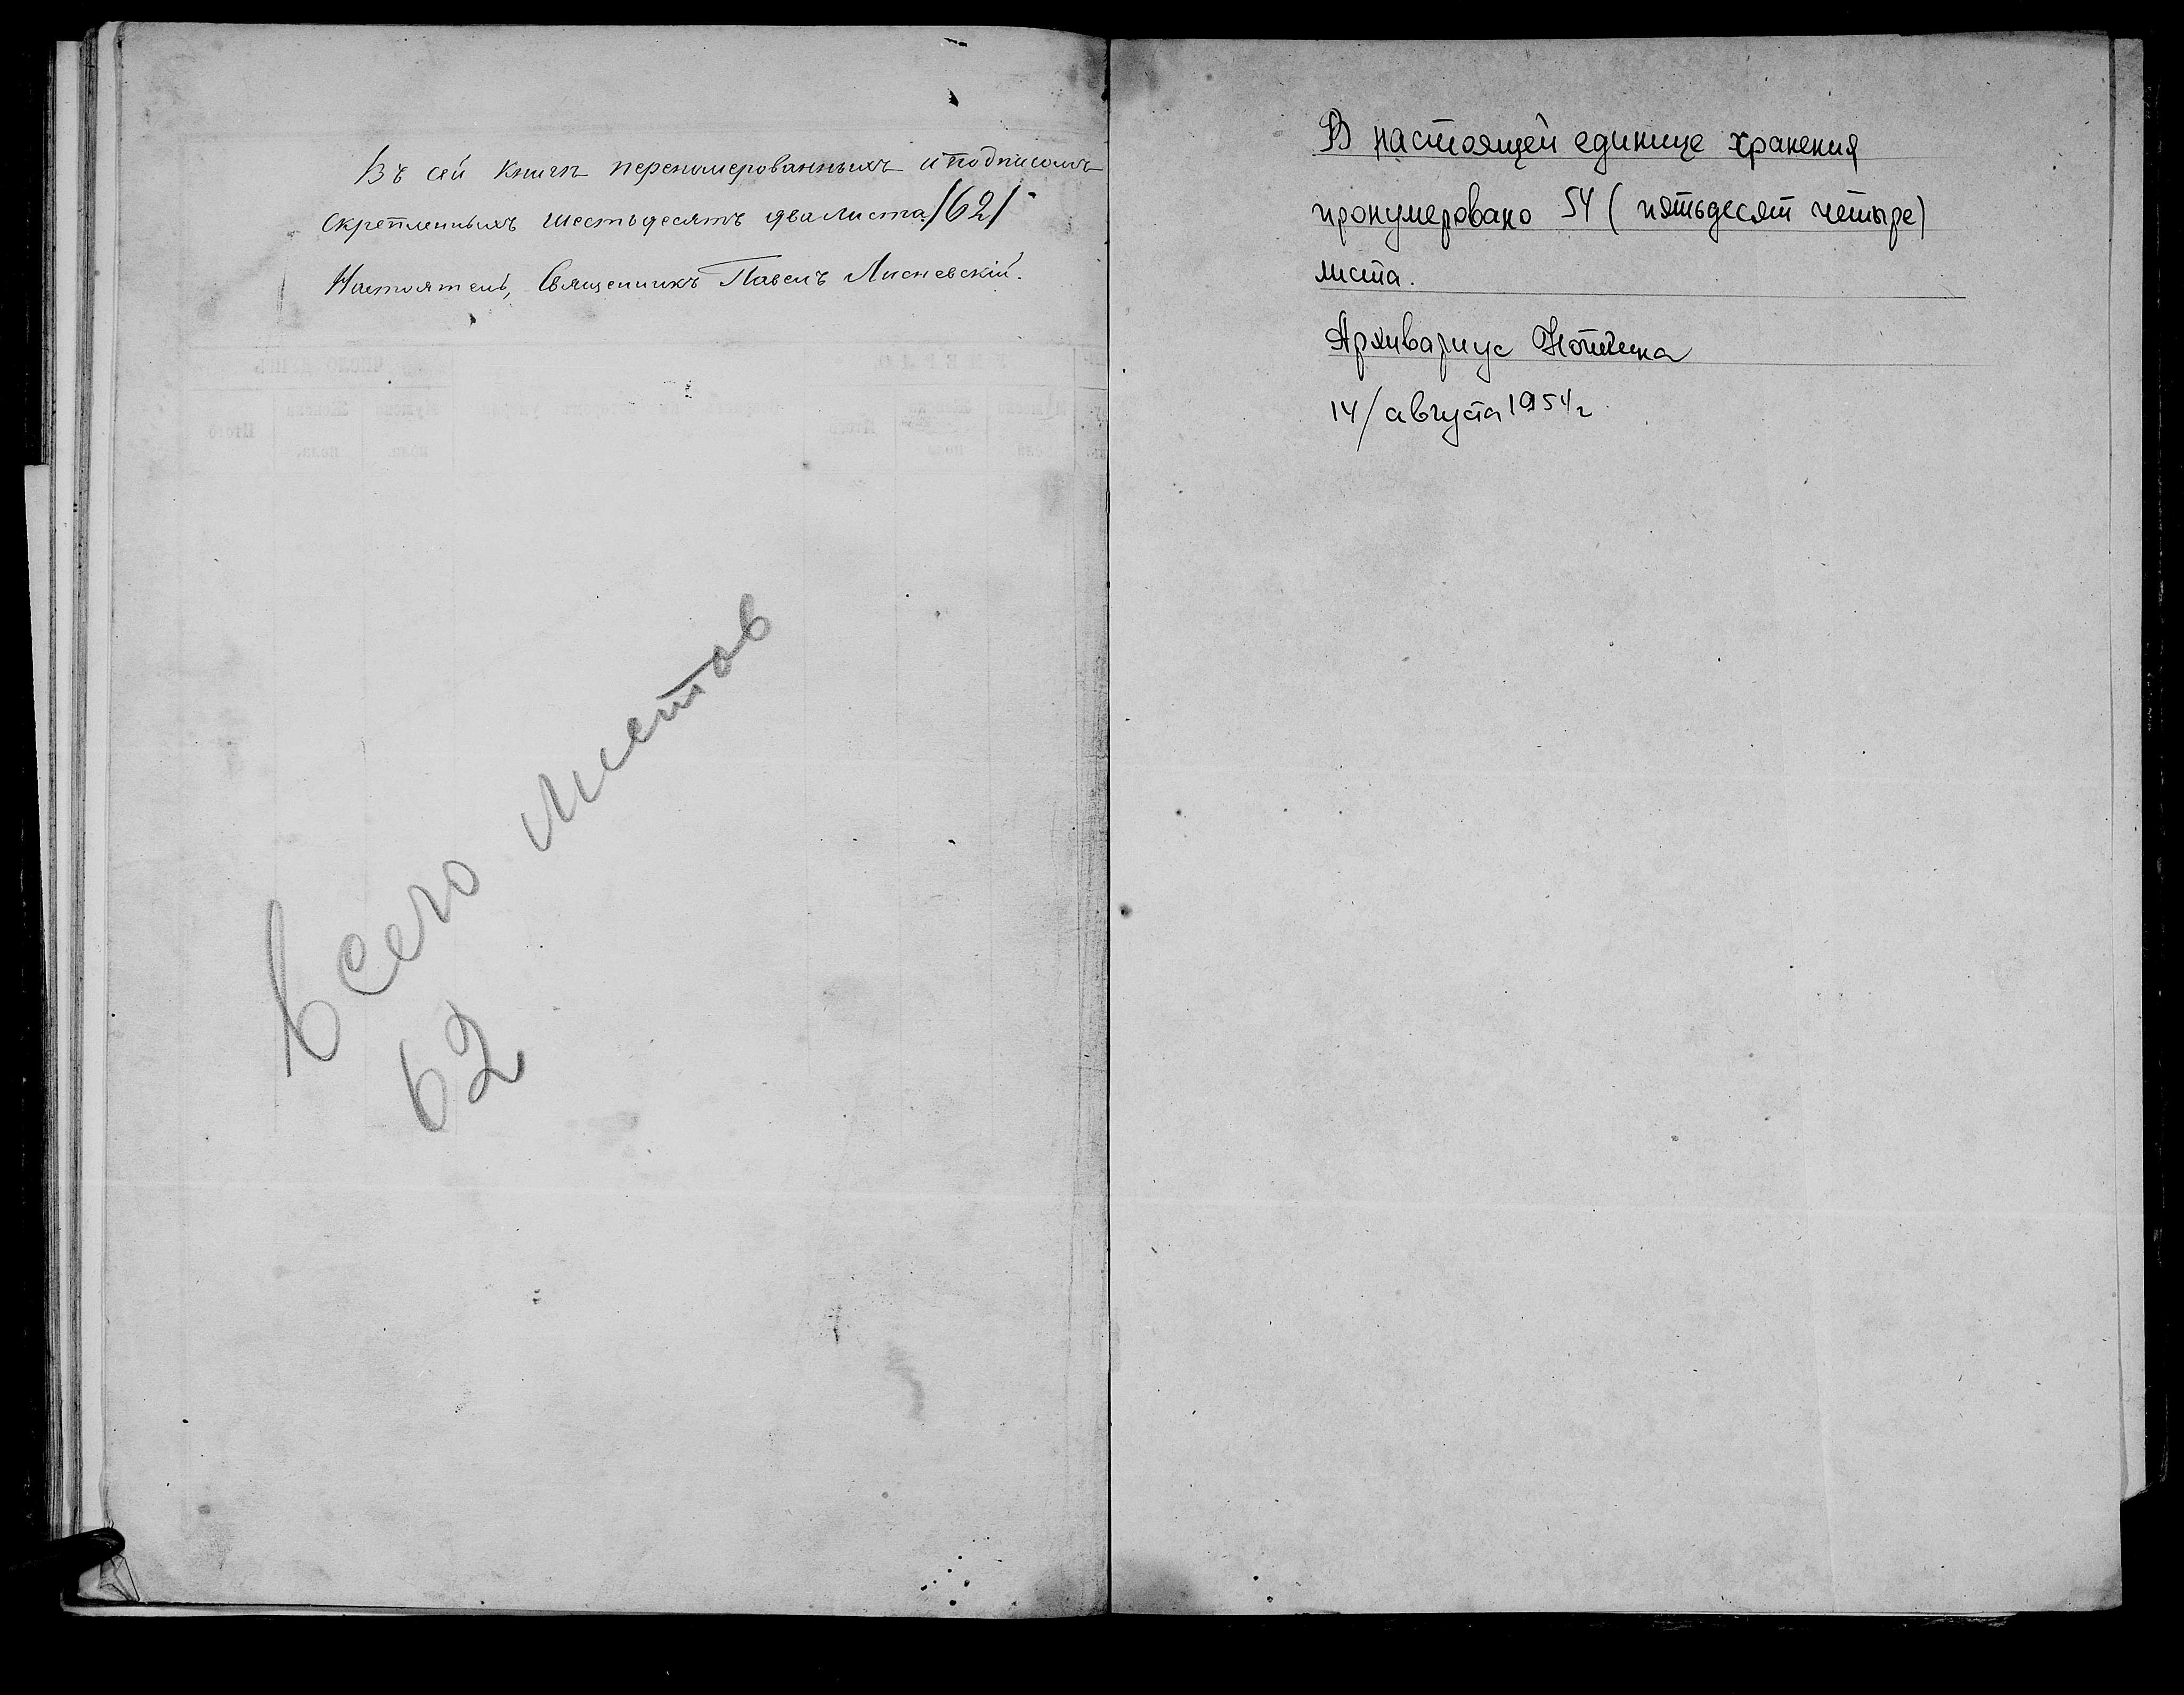 Въ сей книгѣ перенумерованныхъ и подписомъ
скрепленныхъ шестьдесятъ два листа /62/
Настоятель, Священникъ Павелъ Лисневскій.
Всего листов
62
В настоящей единице хранения
пронумеровано 54 (пятьдесят четыре)
листа.
Архивариус
14/августа 1954г